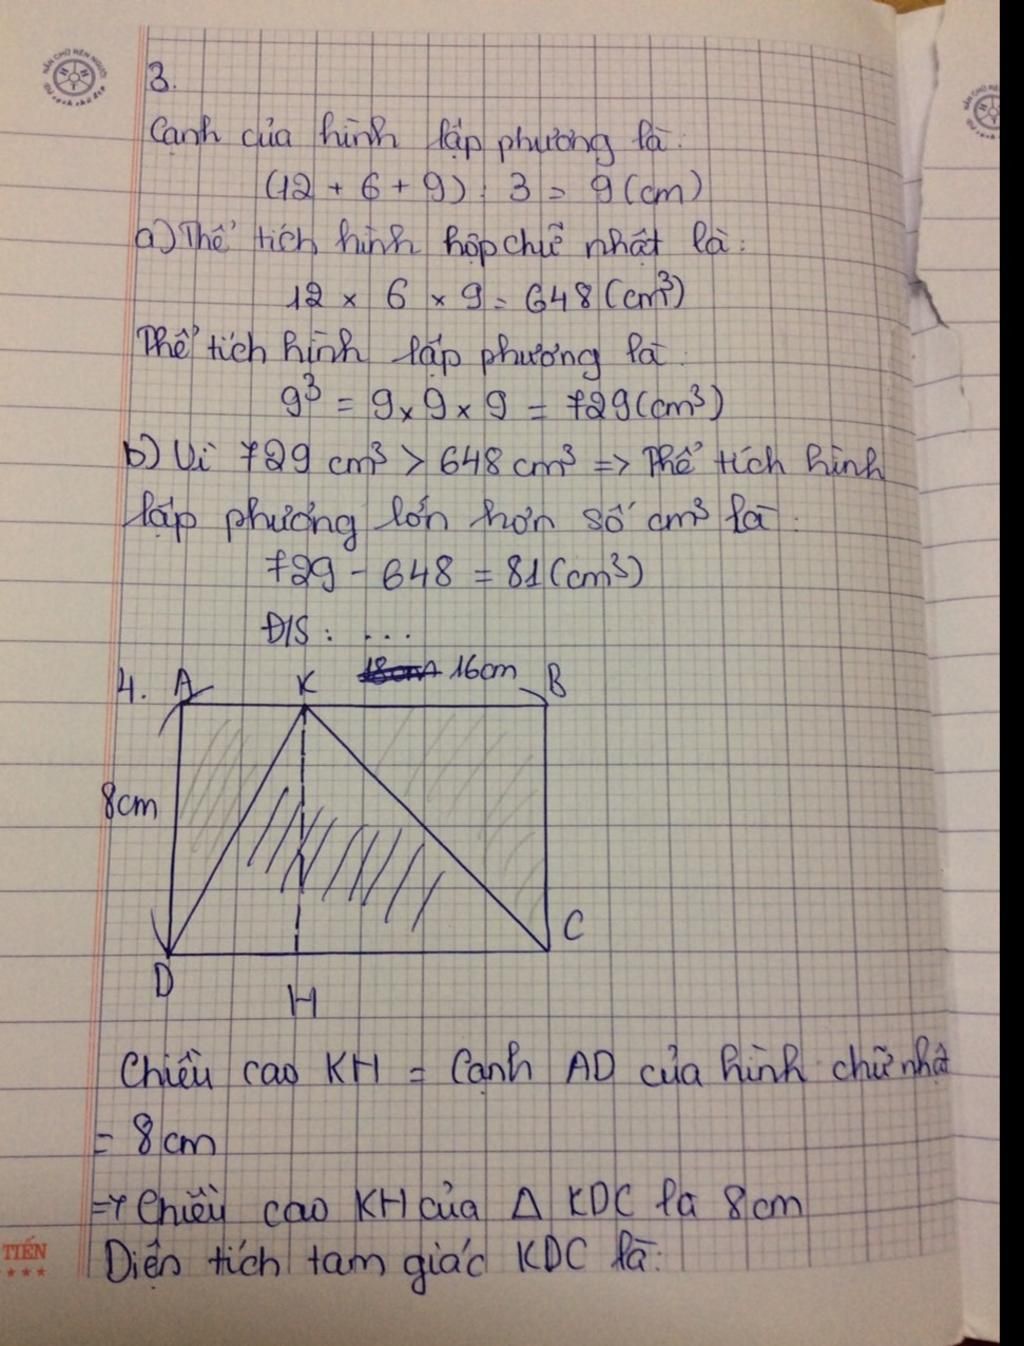 3.
Cạnh của hình lập phương là:
(12 + 6 + 9) : 3 = 9 (cm)
a) Thể tích hình hộp chữ nhật là:
12 × 6 × 9 = 648 (cm³)
Thể tích hình lập phương là:
9³ = 9 × 9 × 9 = 729 (cm³)
b) Vì 729 cm³ > 648 cm³ => Thể tích hình
lập phương lớn hơn số cm³ là:
729 - 648 = 81 (cm³)
Đ/S: ...
4. A K 16cm B
8cm
C
D
H
Chiều cao KH = Cạnh AD của hình chữ nhật
= 8 cm
=> Chiều cao KH của Δ KDC là 8cm
TIẾN
Diện tích tam giác KDC là: